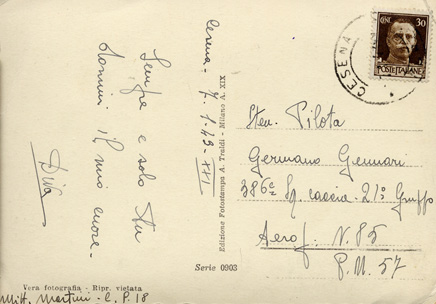 Cesena - 7. 1-43-XXI
Sempre e solo tu
dammi il mio cuore -
Diva
Edizione Fotostampa A. Traldi - Milano A. XIX
Serie 0903
Vera fotografia - Ripr. vietata
Mitt. Martini - C. P. 18
CESENA
CENT 30
POSTE ITALIANE
Pilota
Germano Gennari
386ª Sq. caccia 21º Gruppo
Aerop. N. 85
P. M. 57